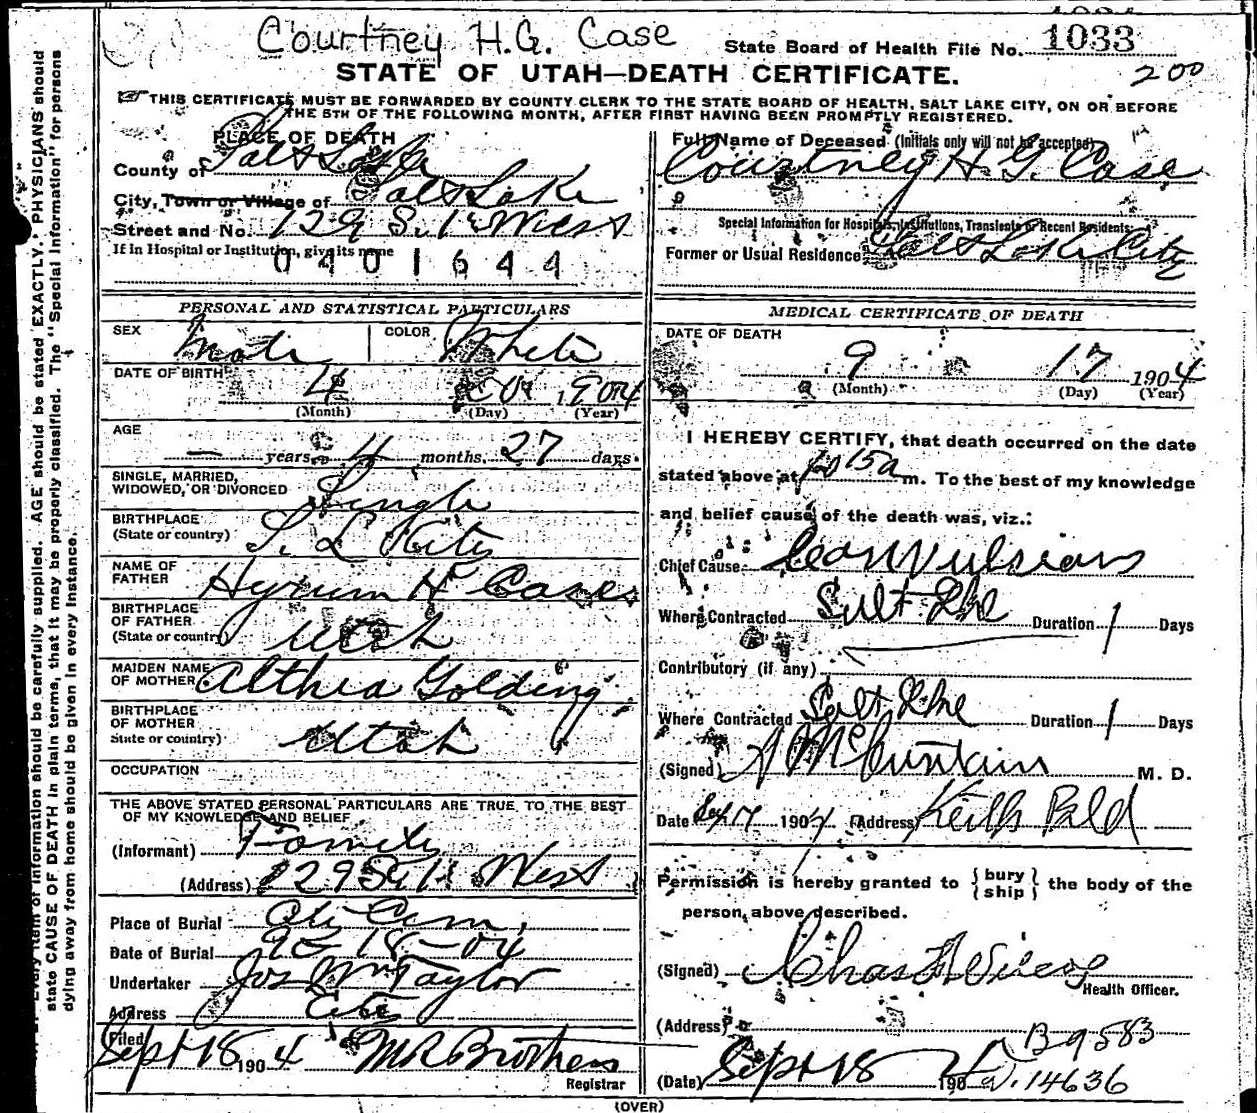 Courtney H.G. Case
State Board of Health File No. 1033
STATE OF UTAH—DEATH CERTIFICATE.
200
THIS CERTIFICATE MUST BE FORWARDED BY COUNTY CLERK TO THE STATE BOARD OF HEALTH, SALT LAKE CITY, ON OR BEFORE
THE 5TH OF THE FOLLOWING MONTH, AFTER FIRST HAVING BEEN PROMPTLY REGISTERED.
PLACE OF DEATH
County of Salt Lake
City, Town or Village of Salt Lake
Street and No. 129 S. 1st West
If in Hospital or Institution, give its name
0401644
PERSONAL AND STATISTICAL PARTICULARS
SEX Male COLOR White
DATE OF BIRTH 4 20 1904
(Month) (Day) (Year)
AGE — years, 4 months, 27 days.
SINGLE, MARRIED,
WIDOWED, OR DIVORCED Single
BIRTHPLACE
(State or country) S. L. City
NAME OF
FATHER Hyrum H Case
BIRTHPLACE
OF FATHER
(State or country) Utah
MAIDEN NAME
OF MOTHER Althea Golding
BIRTHPLACE
OF MOTHER
State or country) Utah
OCCUPATION
THE ABOVE STATED PERSONAL PARTICULARS ARE TRUE TO THE BEST
OF MY KNOWLEDGE AND BELIEF
(Informant) Family
(Address) 129 S 1st West
Place of Burial City Cem,
Date of Burial 9-18-04
Undertaker Jos Wm Taylor
Address City
Filed
Sept 18 1904 M R Brothers
Registrar
Full Name of Deceased (Initials only will not be accepted)
Courtney H. G. Case
Special Information for Hospitals, Institutions, Transients or Recent Residents:
Former or Usual Residence Salt Lake City
MEDICAL CERTIFICATE OF DEATH
DATE OF DEATH
9 17 1904
(Month) (Day) (Year)
I HEREBY CERTIFY, that death occurred on the date
stated above at 15a m. To the best of my knowledge
and belief cause of the death was, viz.:
Chief Cause Convulsions
Where Contracted Salt Lke Duration 1 Days
Contributory (if any)
Where Contracted Salt Lke Duration 1 Days
(Signed) M. D.
Date Sep 17 1904 (Address Keith Bld
Permission is hereby granted to { bury ship } the body of the
person above described.
(Signed) Chas
Health Officer.
(Address)
B 9583
(Date) Sept 18 190 14636
(OVER)
Every item of information should be carefully supplied. AGE should be stated EXACTLY. PHYSICIANS should
state CAUSE OF DEATH in plain terms, that it may be properly classified. The "Special Information" for persons
dying away from home should be given in every instance.